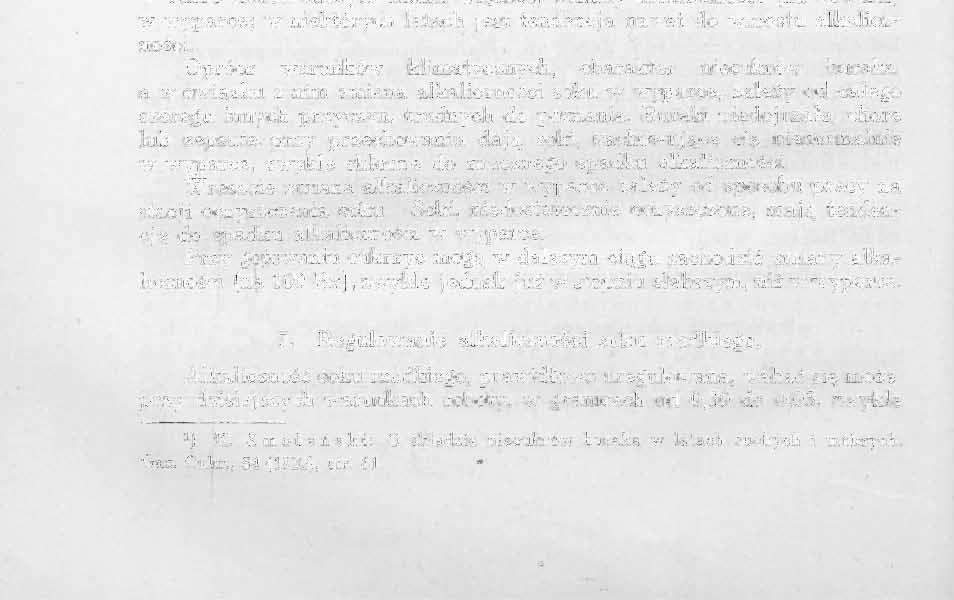 w wyparce; w niektórych latach jest tendencja nawet do wzrostu alkalicz-
ności.
Oprócz warunków klimatycznych, charakter niecukrów buraka
a w związku z nim zmiana alkaliczności soku w wyparce, zależy od całego
szeregu innych przyczyn, trudnych do poznania. Buraki niedojrzałe, chore
lub zepsute przy przechowaniu, dają soki, zachowujące się nienormalnie
w wyparce, zwykle skłonne do mocnego spadku alkaliczności.
Wreszcie zmiana alkaliczności w wyparce zależy od sposobu pracy na
stacji oczyszczania soku. Soki, niedostatecznie oczyszczone, mają tenden-
cję do spadku alkaliczności w wyparce.
Przy gotowaniu cukrzyc mogą w dalszym ciągu zachodzić zmiany alka-
liczności (na 100 Bx), zwykle jednak już w stopniu słabszym, niż w wyparce.
I. Regulowanie alkaliczności soku rzadkiego.
Alkaliczność soku rzadkiego, prawidłowo uregulowana, wahać się może
przy dzisiejszych warunkach roboty, w granicach od do zwykle
¹) K. Smoleński: O składzie niecukrów buraka w latach suchych i mokrych.
Gaz. Cukr., str.